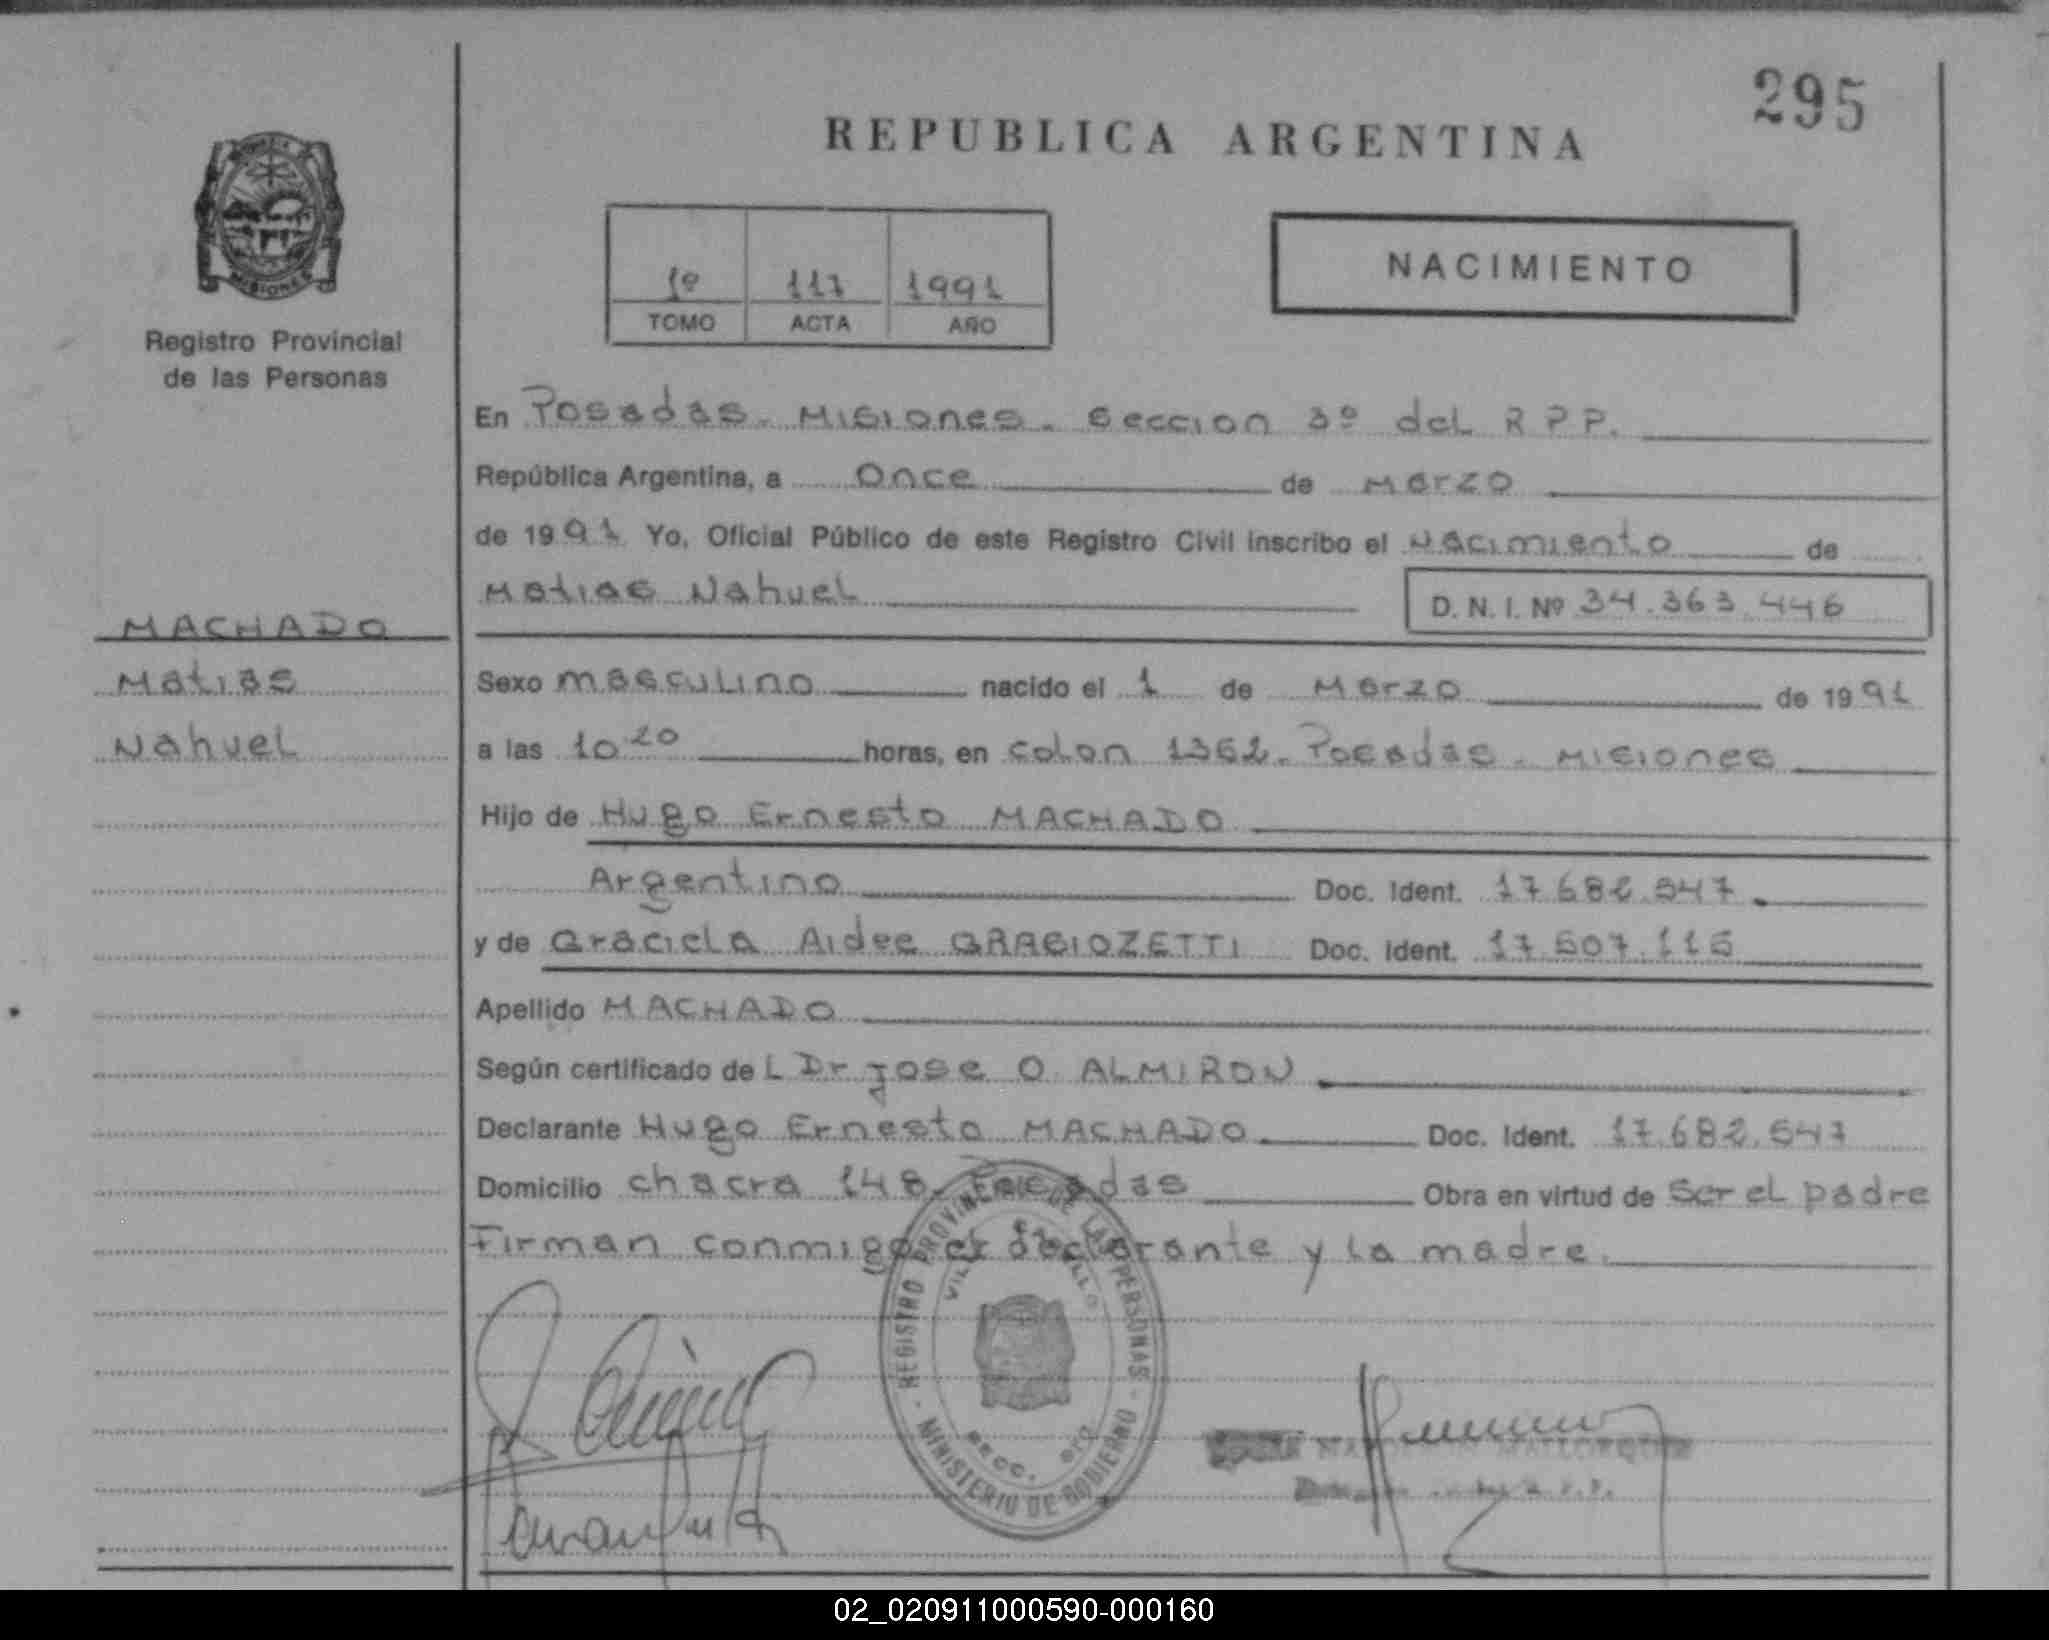 295
REPUBLICA ARGENTINA
MISIONES
Registro Provincial
de las Personas
1º 117 1991
TOMO ACTA AÑO
NACIMIENTO
En Posadas. Misiones. Seccion 3º del R P P.
República Argentina, a Once de Marzo
de 1991 Yo, Oficial Público de este Registro Civil inscribo el Nacimiento de
Matias Nahuel D. N. I. Nº 34.363.446
MACHADO
Matias
Nahuel
Sexo masculino nacido el 1 de Marzo de 1991
a las 10 20 horas, en Colon 1362. Posadas. Misiones
Hijo de Hugo Ernesto MACHADO
Argentino Doc. Ident. 17.682.547
y de Graciela Aidee Doc. Ident. 17.507.115
Apellido MACHADO
Según certificado de L Dr Jose O. ALMIRON
Declarante Hugo Ernesto MACHADO Doc. Ident. 17.682.547
Domicilio chacra 148. Posadas Obra en virtud de Ser el padre
Firman conmigo el declarante y la madre.
REGISTRO PROVINCIAL DE LAS PERSONAS
MINISTERIO DE GOBIERNO
SECC.
02_020911000590-000160